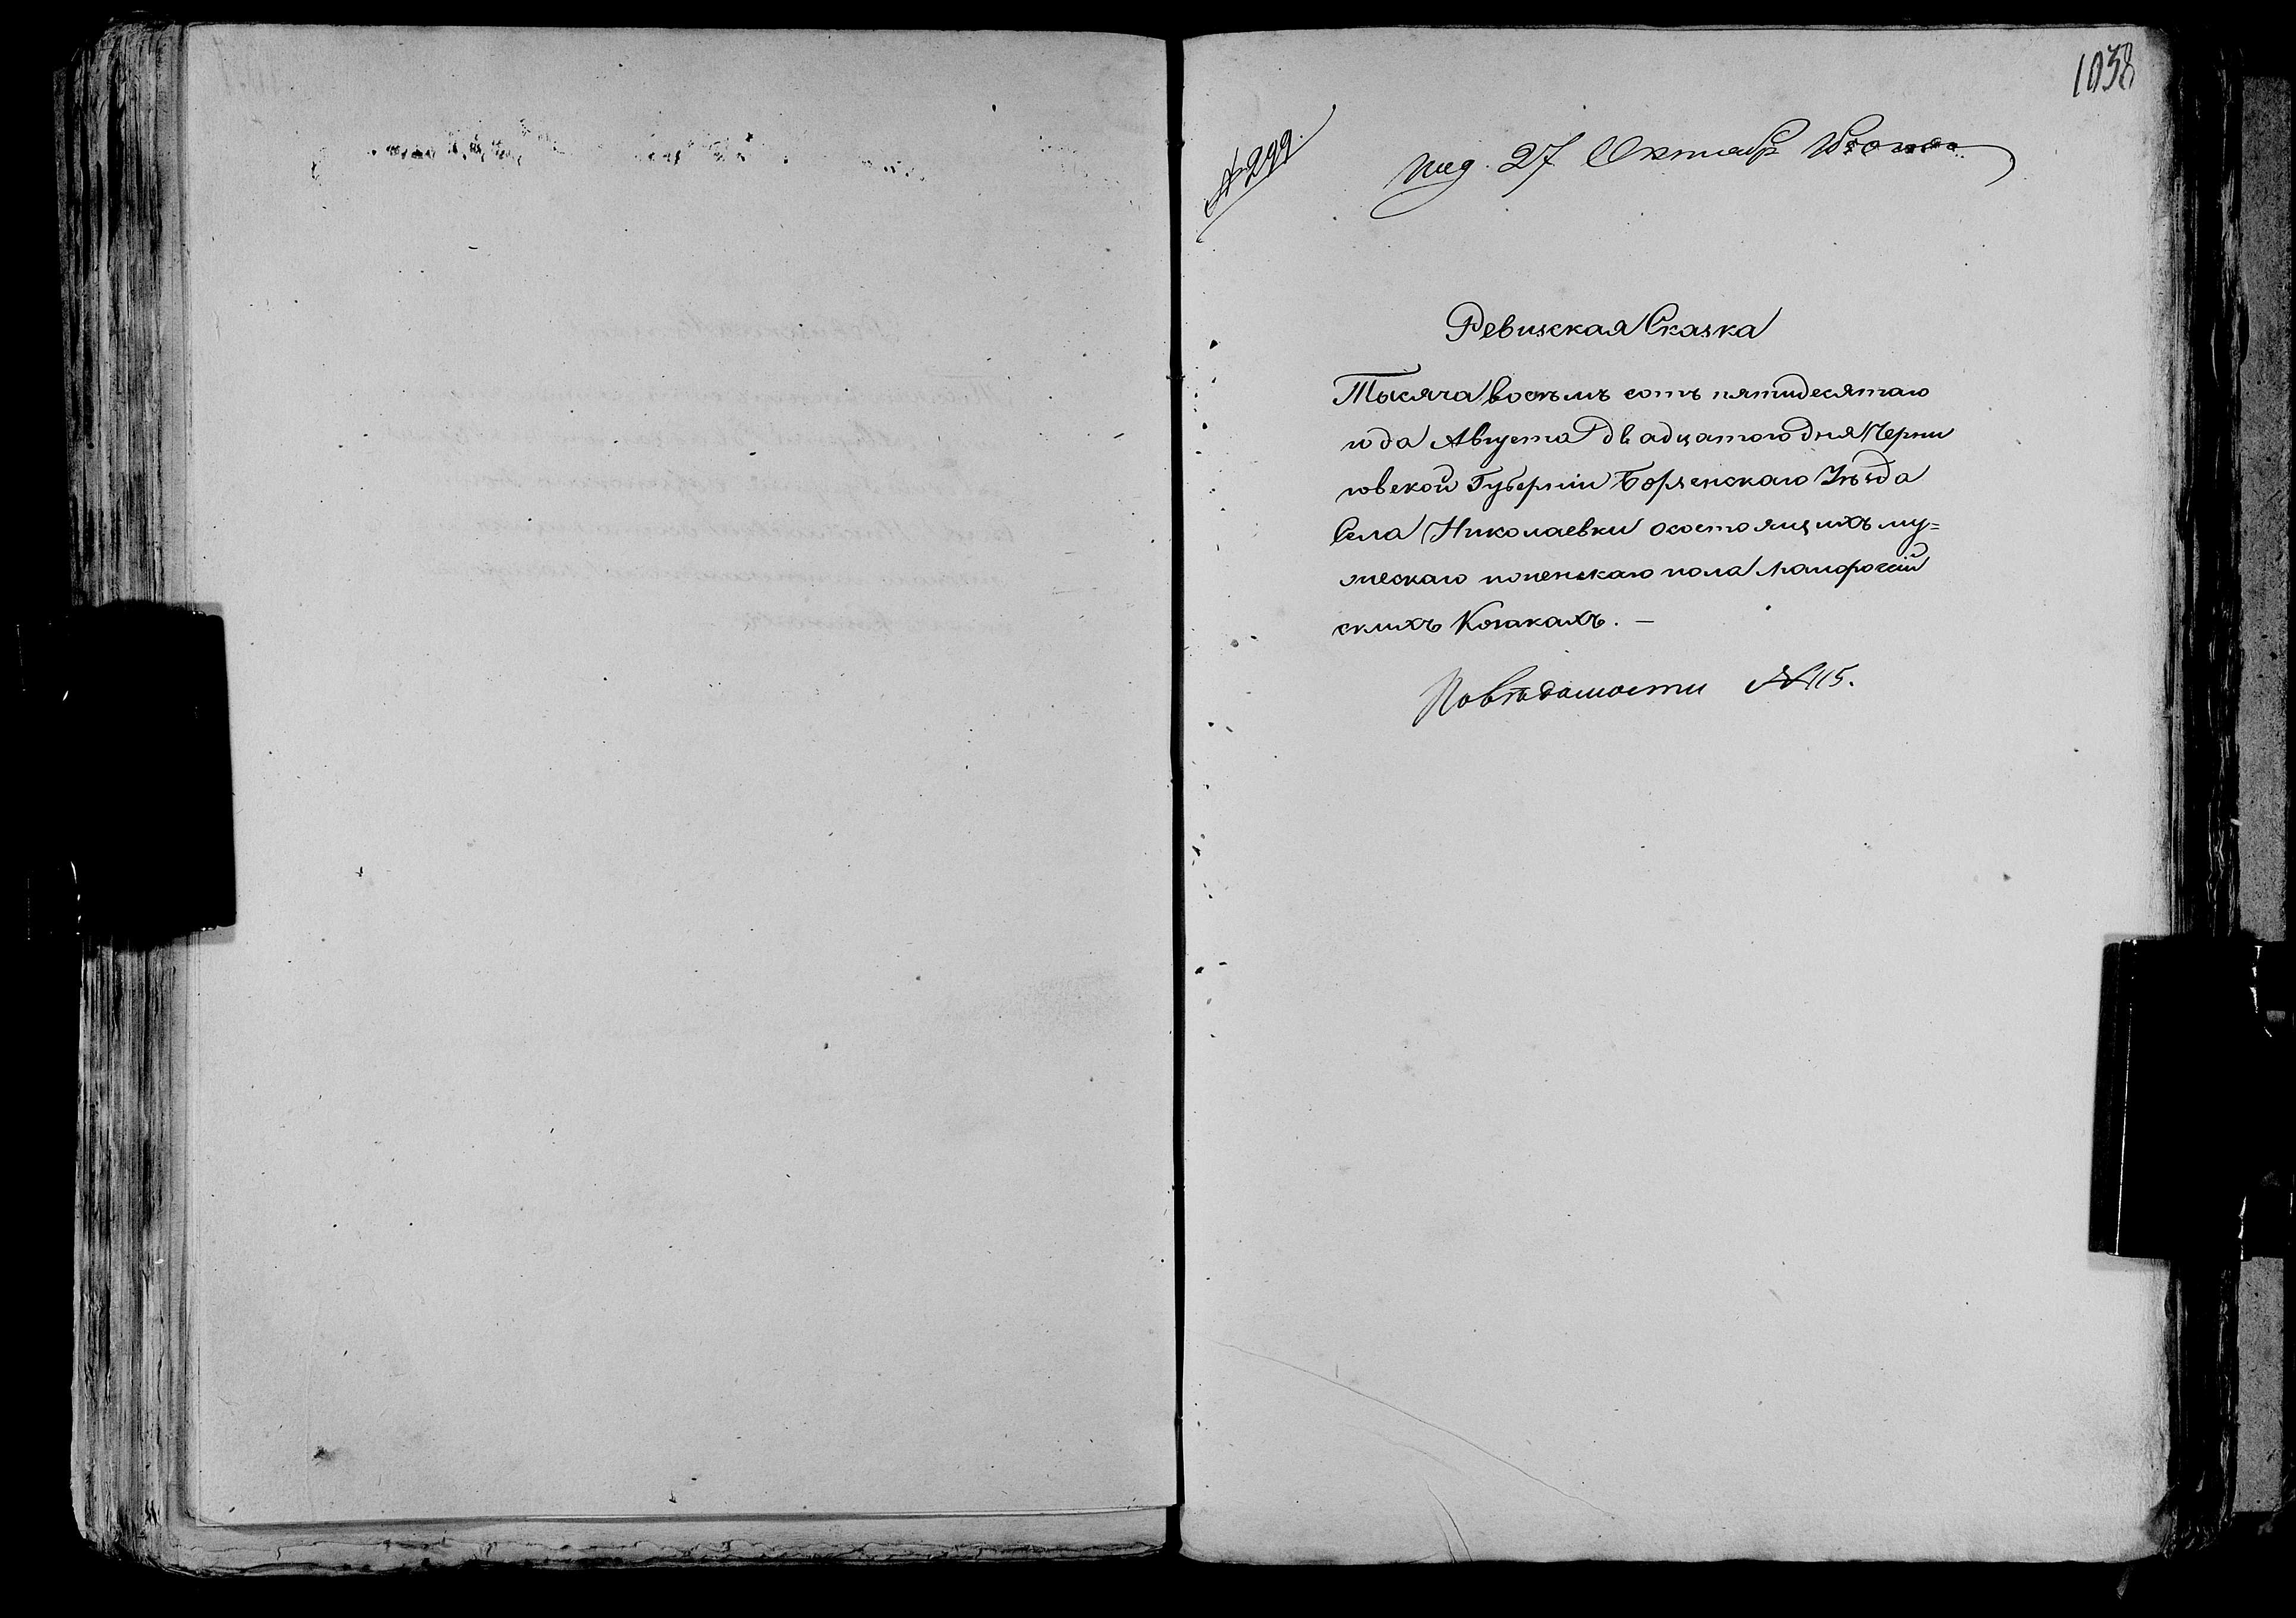 1038
№ 299.
под. 27 Октабр
Ревизская Сказка
Тысяча восемъ сотъ пятидесятаго
года Августа двадцатого дня Черни
говской Губерніи Борзенскаго Уѣзда
Села Николаевки о состоящихъ му=
жескаго и женскаго пола Малороссій
скихъ Козакахъ. —
По вѣдомости № 115.